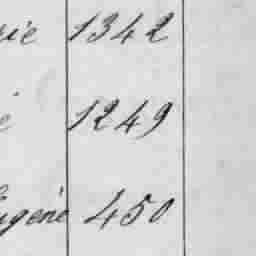 rie 1342
é 1249
ugène 450